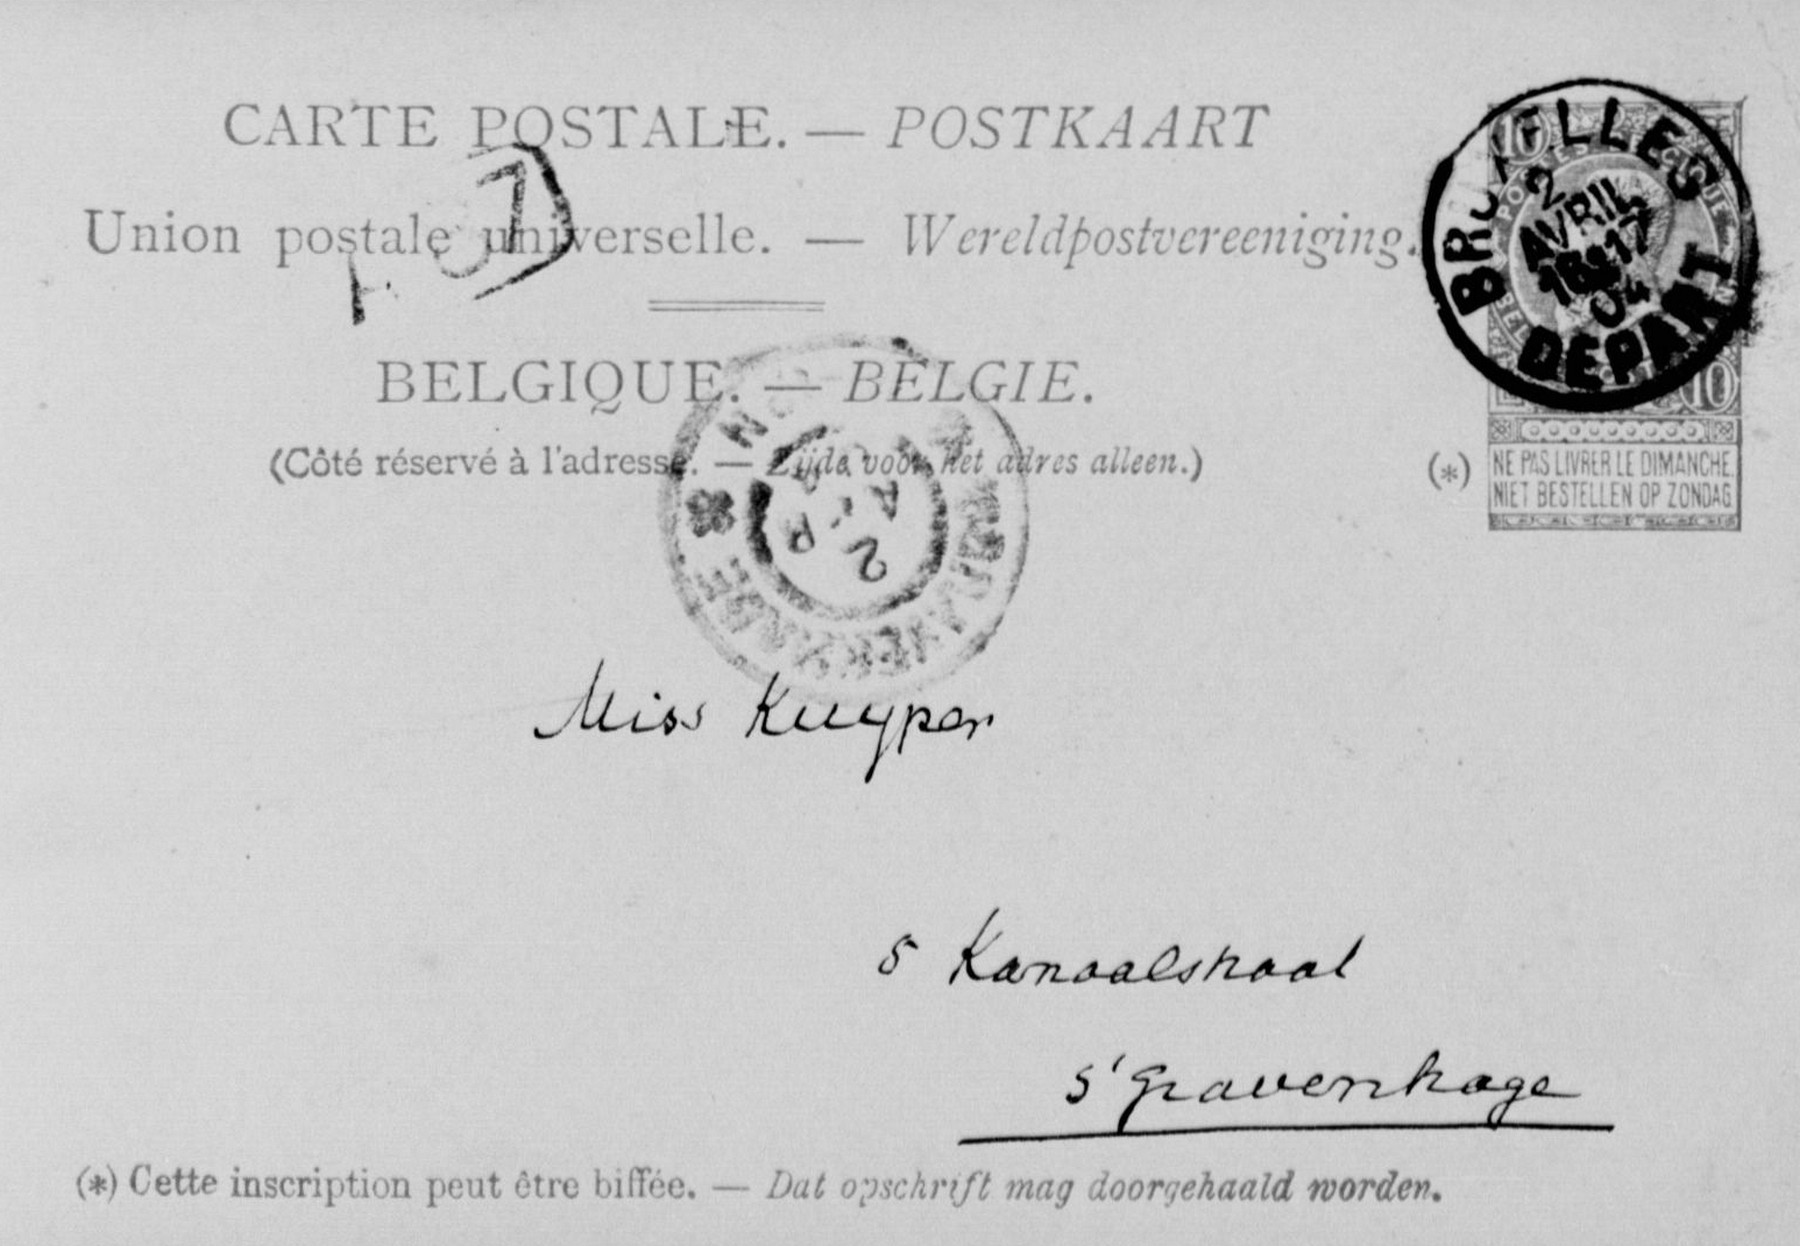 CARTE POSTALE. — POSTKAART
Union postale universelle. — Wereldpostvereeniging.
BELGIQUE. — BELGIE.
(Côté réservé à l'adresse. — Zijde voor het adres alleen.)
10
BRUXELLES
2
AVRIL
17
04
DEPART
10
(*) NE PAS LIVRER LE DIMANCHE.
NIET BESTELLEN OP ZONDAG
2
Miss Kuyper
5 Kanaalstraat
s'Gravenhage
(*) Cette inscription peut être biffée. — Dat opschrift mag doorgehaald worden.